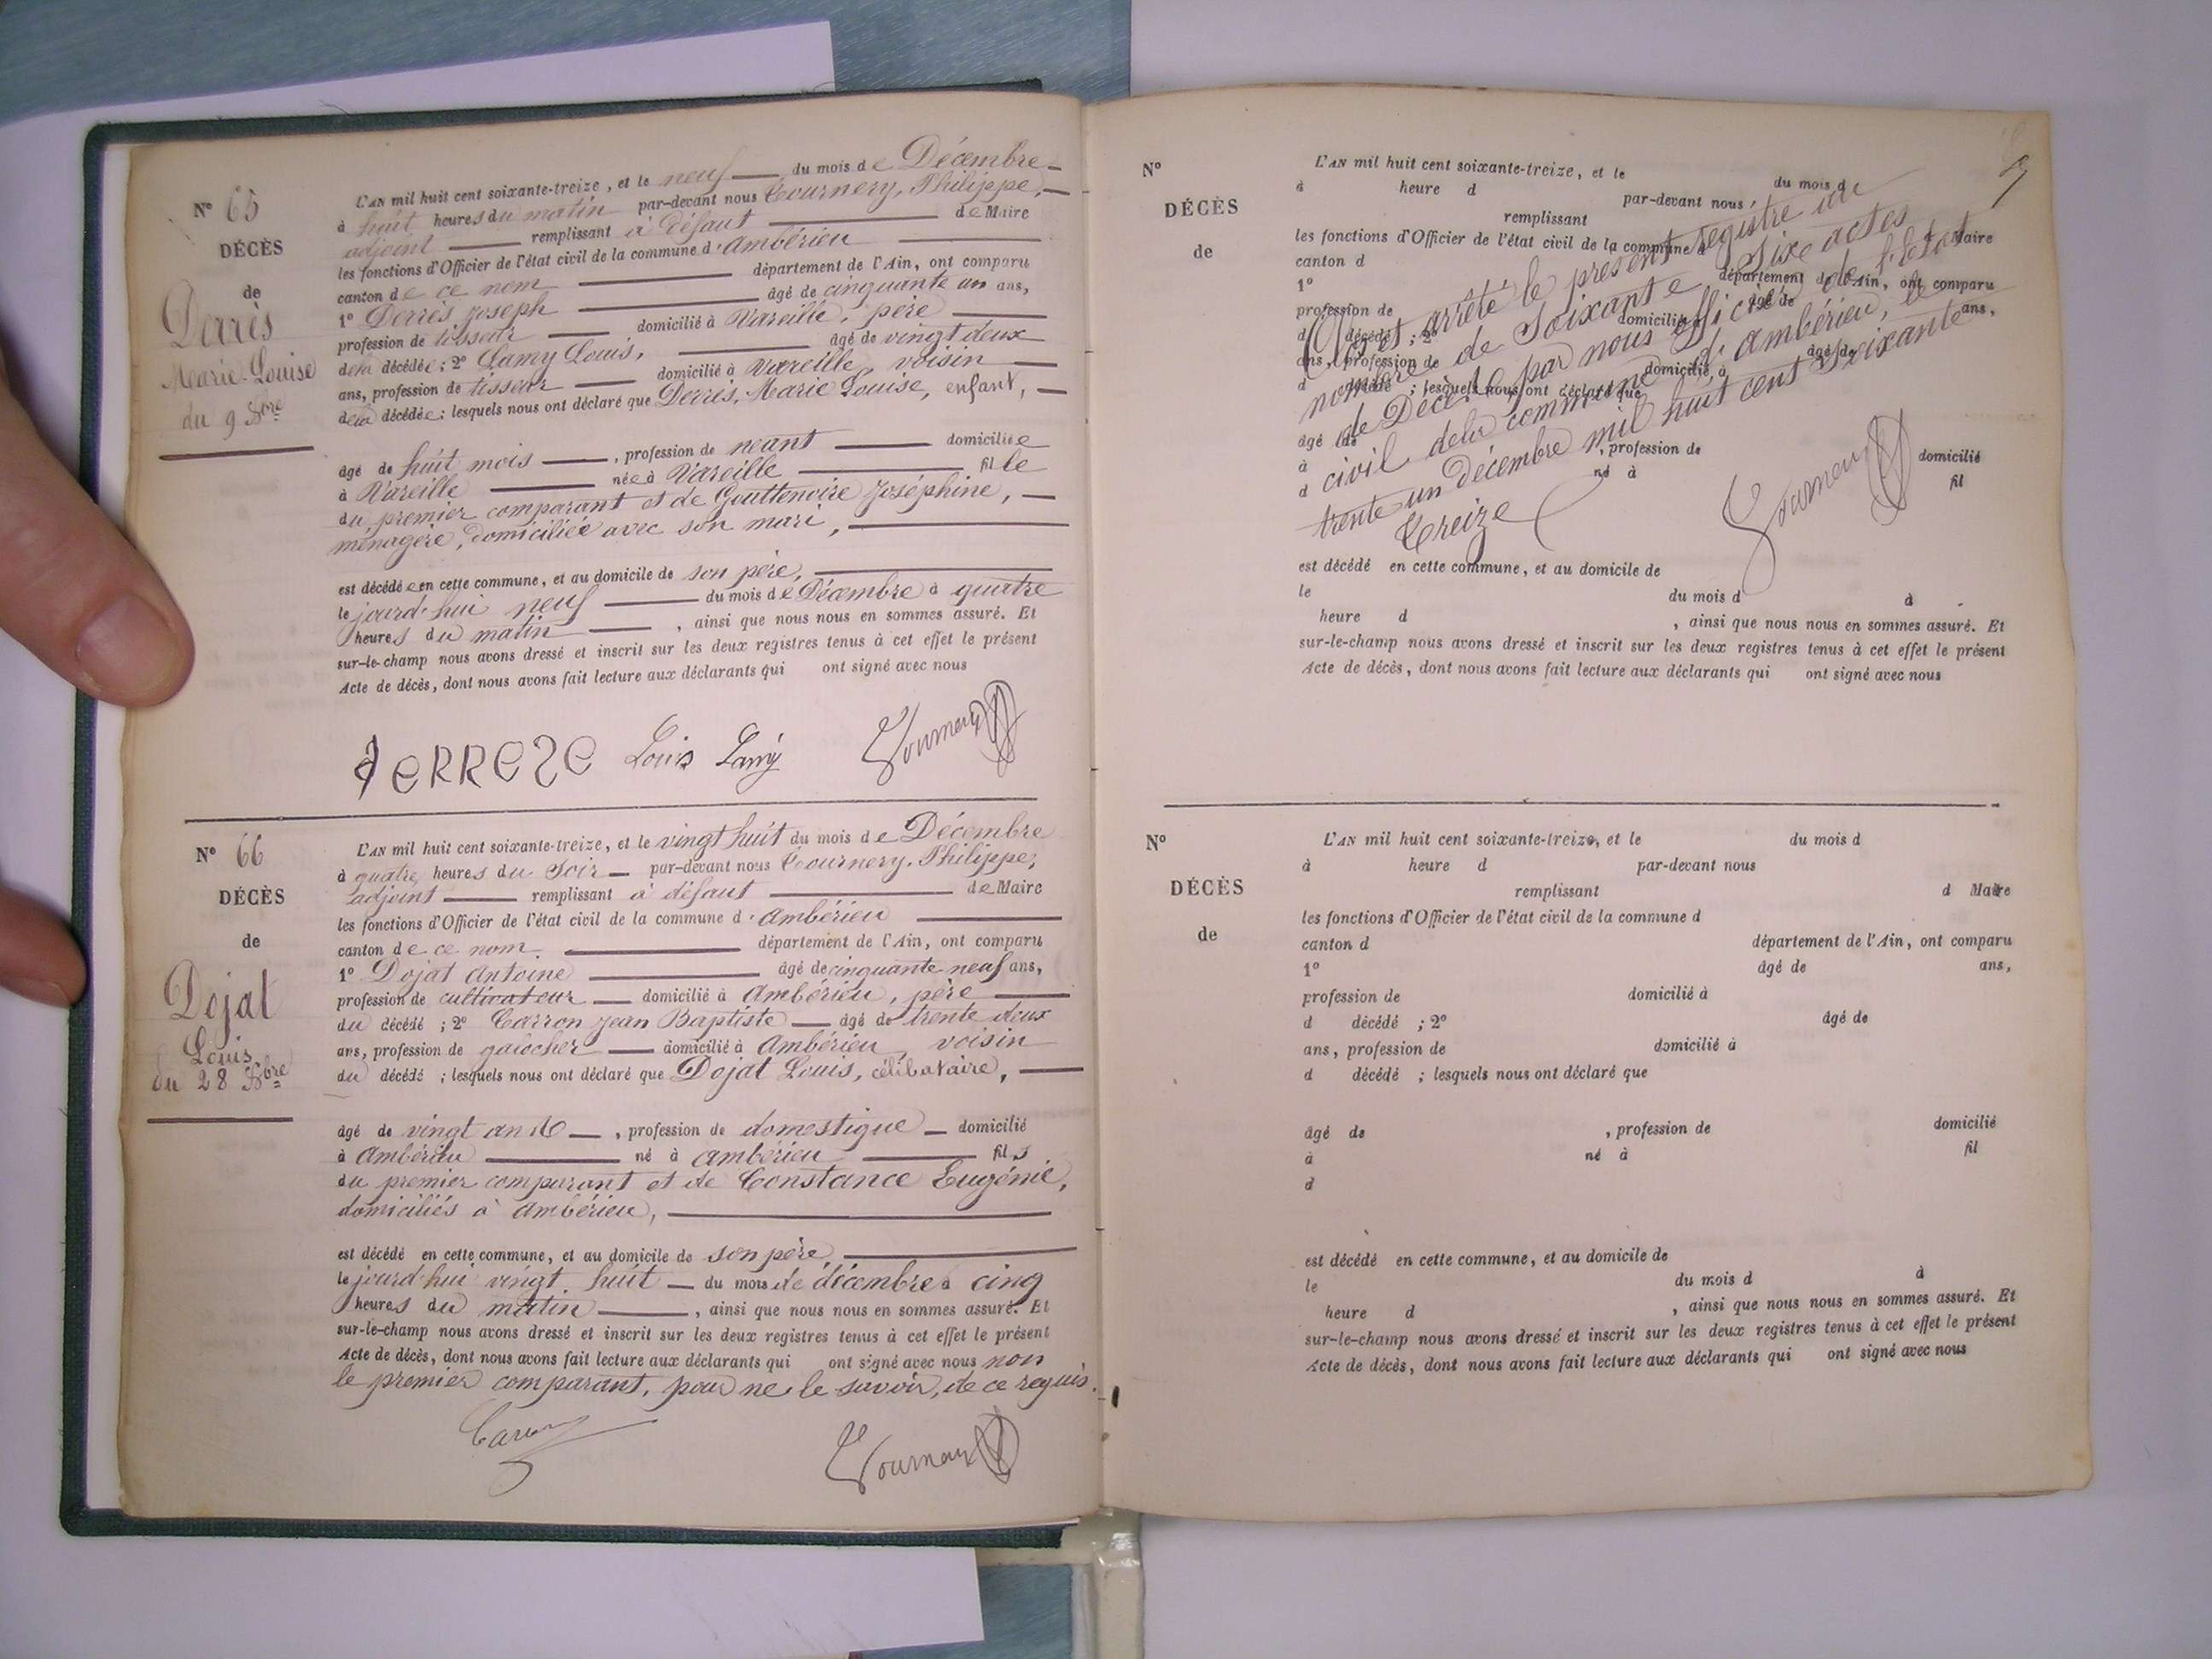 N° 65
DÉCÈS
de
Derrès
Marie-Louise
du 9 Xbre
L'AN mil huit cent soixante-treize, et le neuf du mois de Décembre
à huit heures du matin par-devant nous Tournery, Philippe,
adjoint remplissant à défaut de Maire
les fonctions d'Officier de l'état civil de la commune d'Ambérieu
canton de ce nom département de l'Ain, ont comparu
1° Derrès Joseph âgé de cinquante un ans,
profession de tisseur domicilié à Vareille, père
de la décédée ; 2° Lamy Louis, âgé de vingt deux
ans, profession de tisseur domicilié à Vareille, voisin
de la décédée ; lesquels nous ont déclaré que Derrès, Marie Louise, enfant,
âgé de huit mois, profession de néant domiciliée
à Vareille née à Vareille fille
du premier comparant et de Gouttenoire Joséphine,
ménagère, domiciliée avec son mari,
est décédée en cette commune, et au domicile de son père,
le jourd'hui neuf du mois de Décembre à quatre
heures du matin, ainsi que nous nous en sommes assuré. Et
sur-le-champ nous avons dressé et inscrit sur les deux registres tenus à cet effet le présent
Acte de décès, dont nous avons fait lecture aux déclarants qui ont signé avec nous
Louis Lamy Tournery
N° 66
DÉCÈS
de
Dojat
Louis
du 28 Xbre
L'AN mil huit cent soixante-treize, et le vingt huit du mois de Décembre
à quatre heures du Soir par-devant nous Tournery, Philippe,
adjoint remplissant à défaut de Maire
les fonctions d'Officier de l'état civil de la commune d'Ambérieu
canton de ce nom département de l'Ain, ont comparu
1° Dojat Antoine âgé de cinquante neuf ans,
profession de cultivateur domicilié à Ambérieu, père
du décédé ; 2° Carron Jean Baptiste âgé de trente deux
ans, profession de galocher domicilié à Ambérieu, voisin
du décédé ; lesquels nous ont déclaré que Dojat Louis, célibataire,
âgé de vingt ans, profession de domestique domicilié
à Ambérieu né à Ambérieu fils
du premier comparant et de Constance Eugénie,
domiciliés à Ambérieu,
est décédé en cette commune, et au domicile de son père,
le jourd'hui vingt huit du mois de décembre à cinq
heures du matin, ainsi que nous nous en sommes assuré. Et
sur-le-champ nous avons dressé et inscrit sur les deux registres tenus à cet effet le présent
Acte de décès, dont nous avons fait lecture aux déclarants qui ont signé avec nous non
le premier comparant, pour ne le savoir, de ce requis.
Carron Tournery
N°
DÉCÈS
de
L'AN mil huit cent soixante-treize, et le du mois d
à heure d par-devant nous
remplissant d Maire
les fonctions d'Officier de l'état civil de la commune d
canton d département de l'Ain, ont comparu
1° âgé de ans,
profession de domicilié à
d décédé ; 2° âgé de
ans, profession de domicilié à
d décédé ; lesquels nous ont déclaré que
âgé de , profession de domicilié
à né à fil
d
Clos et arrêté le présent registre au
nombre de Soixante Six actes
de Décès par nous officier de l'Etat
civil de la commune d'Ambérieu, le
trente un Décembre mil huit cent soixante
Treize
Tournery
est décédé en cette commune, et au domicile de
le du mois d à
heure d , ainsi que nous nous en sommes assuré. Et
sur-le-champ nous avons dressé et inscrit sur les deux registres tenus à cet effet le présent
Acte de décès, dont nous avons fait lecture aux déclarants qui ont signé avec nous
N°
DÉCÈS
de
L'AN mil huit cent soixante-treize, et le du mois d
à heure d par-devant nous
remplissant d Maire
les fonctions d'Officier de l'état civil de la commune d
canton d département de l'Ain, ont comparu
1° âgé de ans,
profession de domicilié à
d décédé ; 2° âgé de
ans, profession de domicilié à
d décédé ; lesquels nous ont déclaré que
âgé de , profession de domicilié
à né à fil
d
est décédé en cette commune, et au domicile de
le du mois d à
heure d , ainsi que nous nous en sommes assuré. Et
sur-le-champ nous avons dressé et inscrit sur les deux registres tenus à cet effet le présent
Acte de décès, dont nous avons fait lecture aux déclarants qui ont signé avec nous